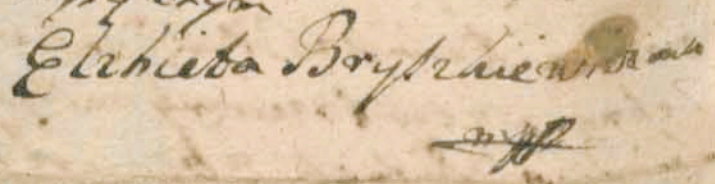 Elzbieta Bryszkiewiczowa
mpp